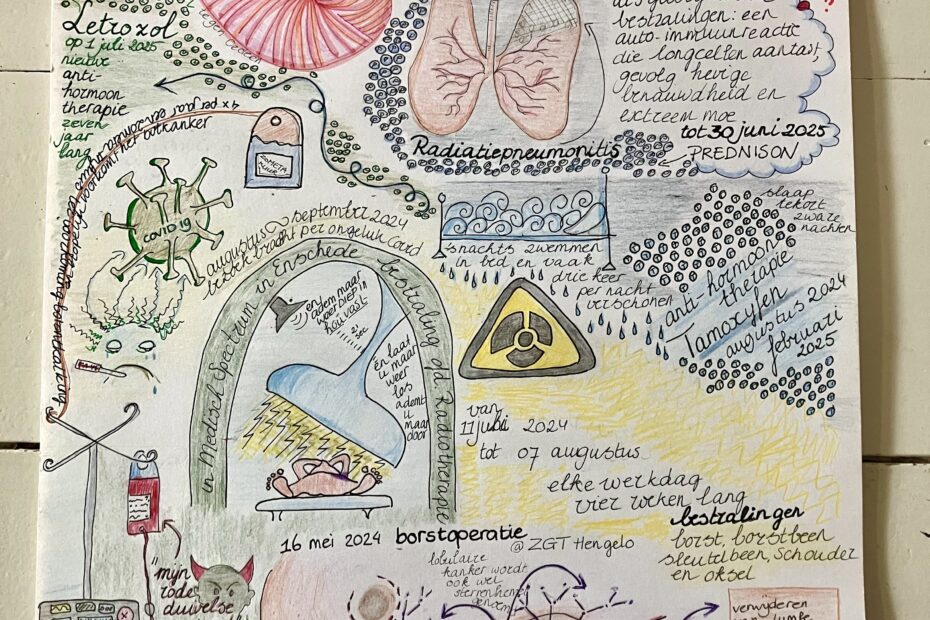 Letrozol
op 1 juli 2025
nieuwe
anti-
hormoon
therapie
zeven
jaar
lang
bestralingen: een
auto-immuunreactie
die longcellen aantast,
gevolg hevige
benauwdheid en
extreem moe
tot 30 juni 2025
PREDNISON
Radiatiepneumonitis
4x per jaar
COVID 19
augustus september 2024
Corid
snachts zwemmen
in bed en vaak
drie keer
per nacht
verschonen
slaap
tekort
zware
nachten
anti-hormoon
therapie
Tamoxifen
augustus 2024
februari
2025
in Medisch Spectrum in Enschede bestraling op Radiotherapie
en adem maar
weer DIEP in
hou vast
én laat
u maar
weer
los
ademt
u
maar
door
van
11 juli 2024
tot 07 augustus
elke werkdag
vier weken lang
bestralingen
borst, borstbeen
sleutelbeen, schouder
en oksel
16 mei 2024 borstoperatie
@ZGT Hengelo
lobulaire
kanker wordt
ook wel
"mijn
rode
duivelse"
verwijderen